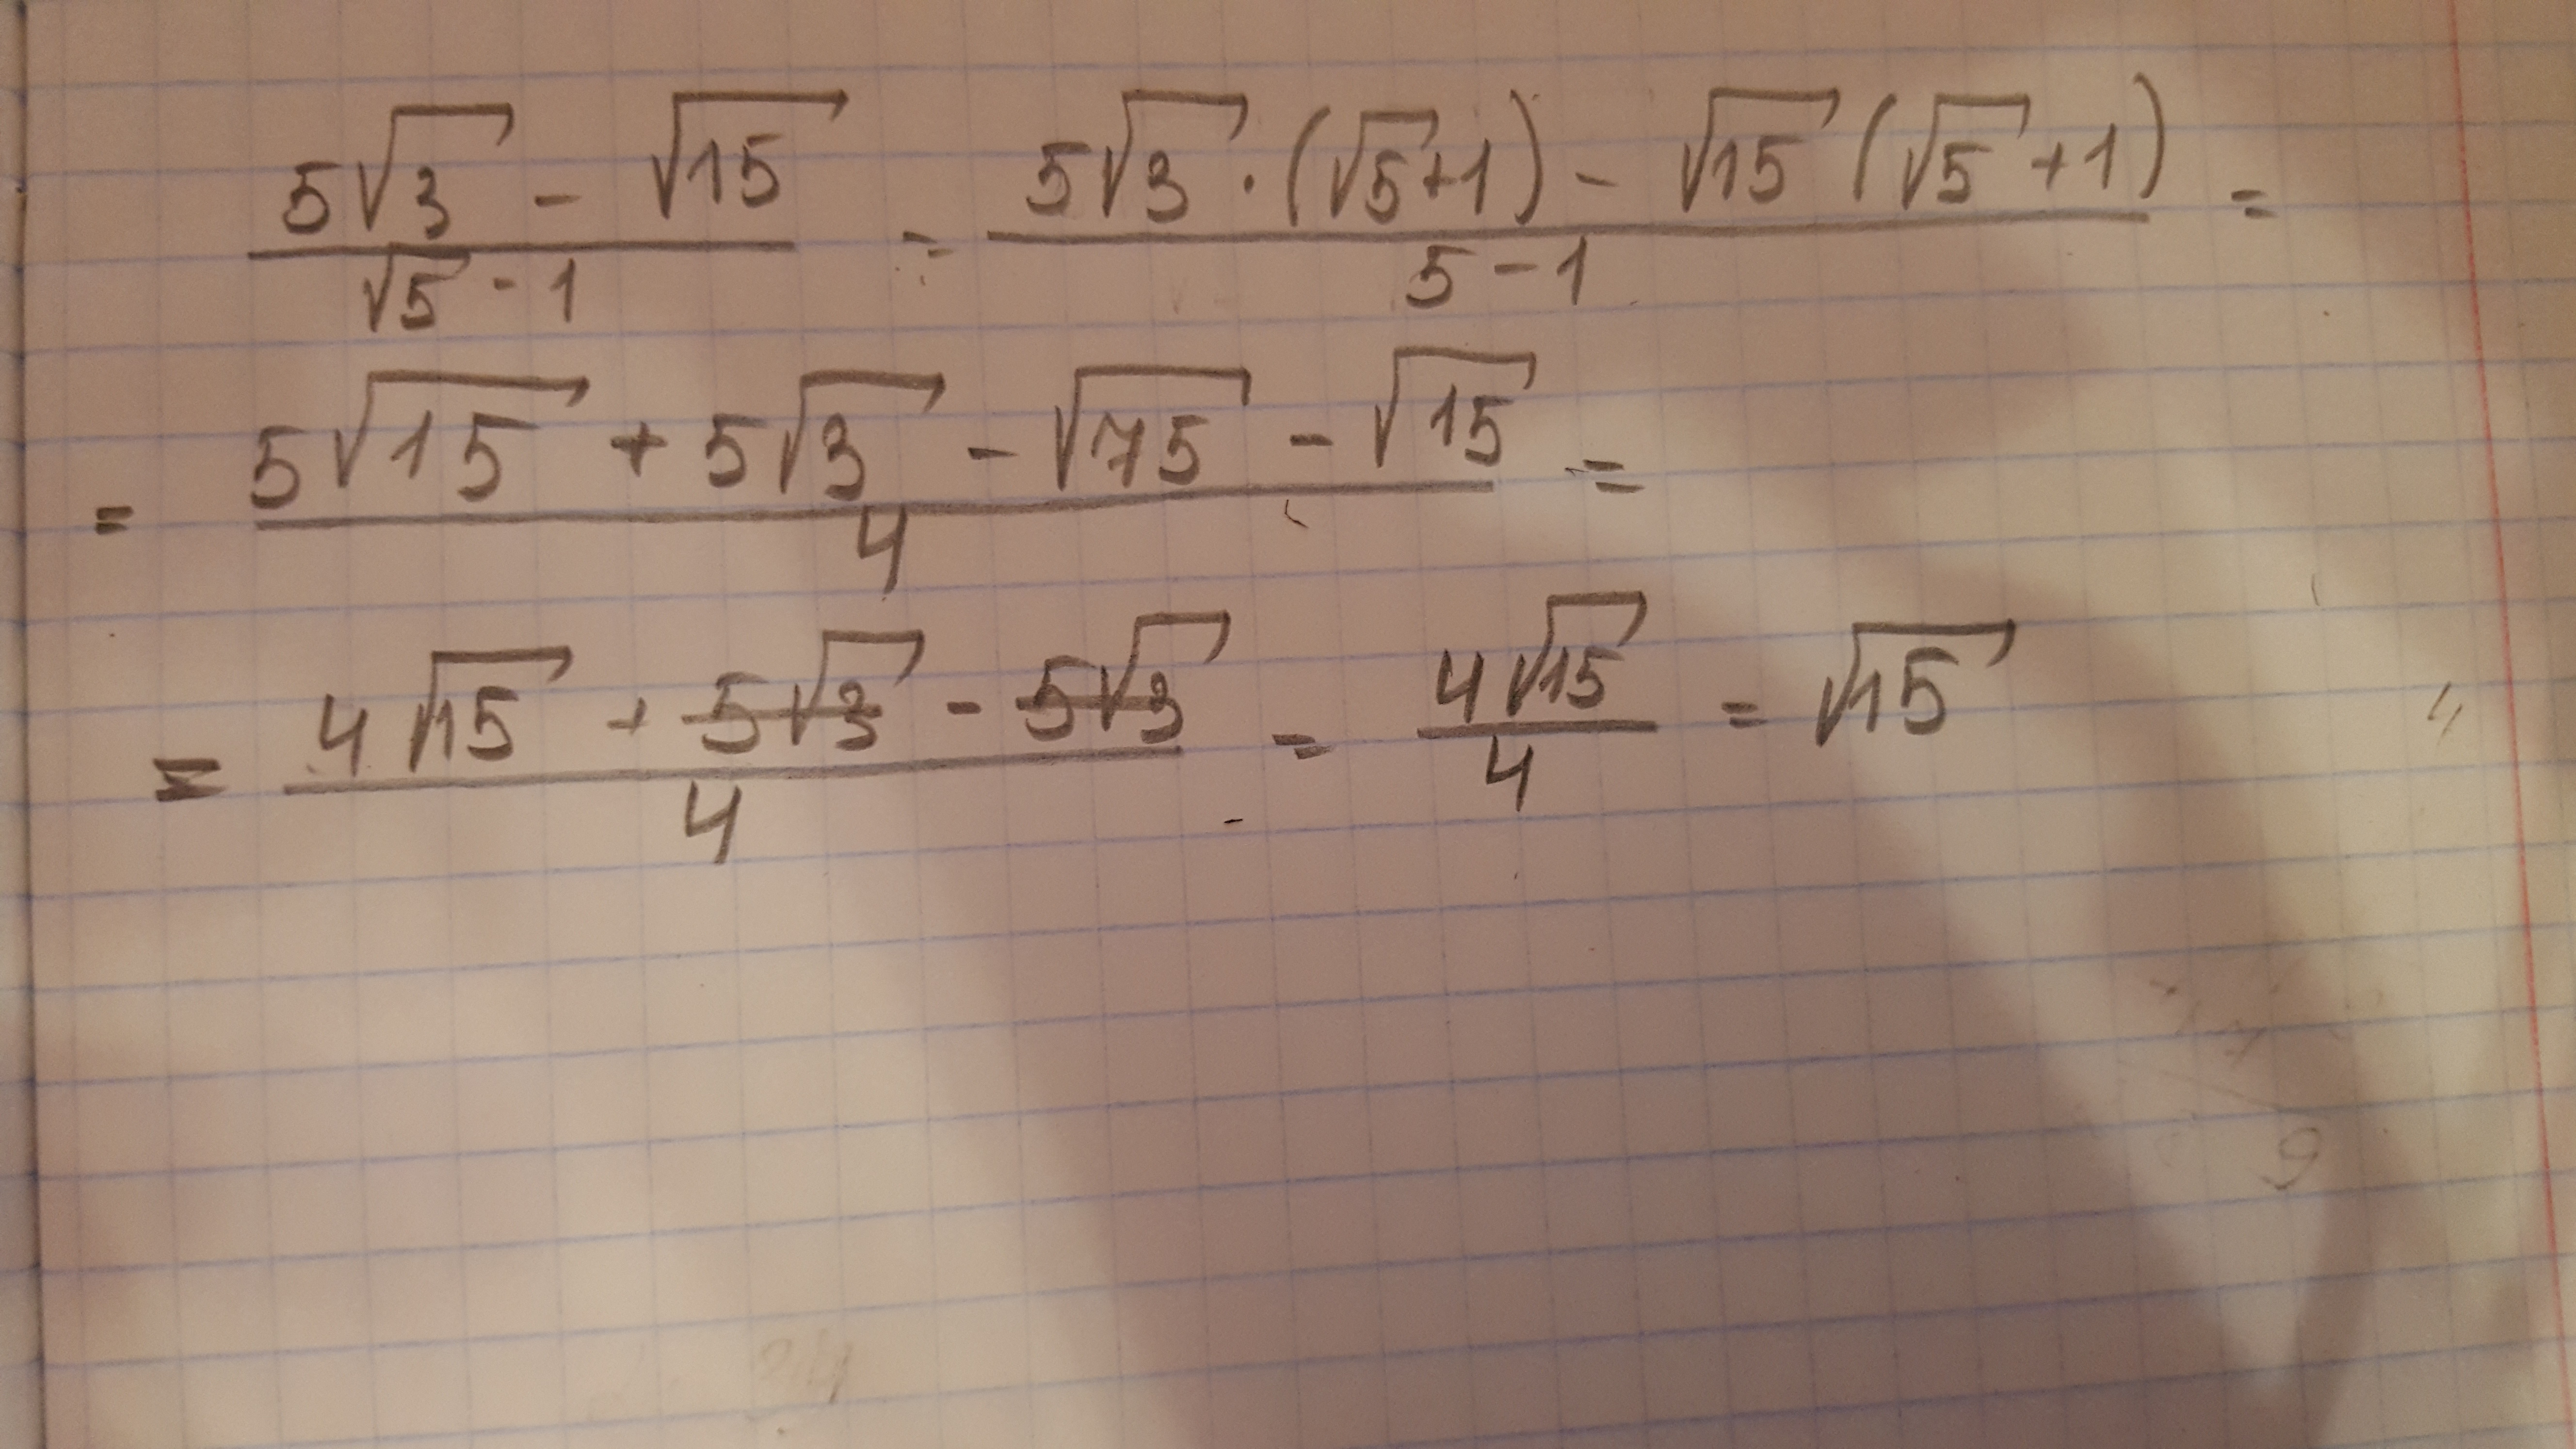 (5√3 - √15)/(√5 - 1) = (5√3 · (√5 + 1) - √15 (√5 + 1))/(5 - 1) =
= (5√15 + 5√3 - √75 - √15)/4 =
= (4√15 + 5√3 - 5√3)/4 = 4√15/4 = √15